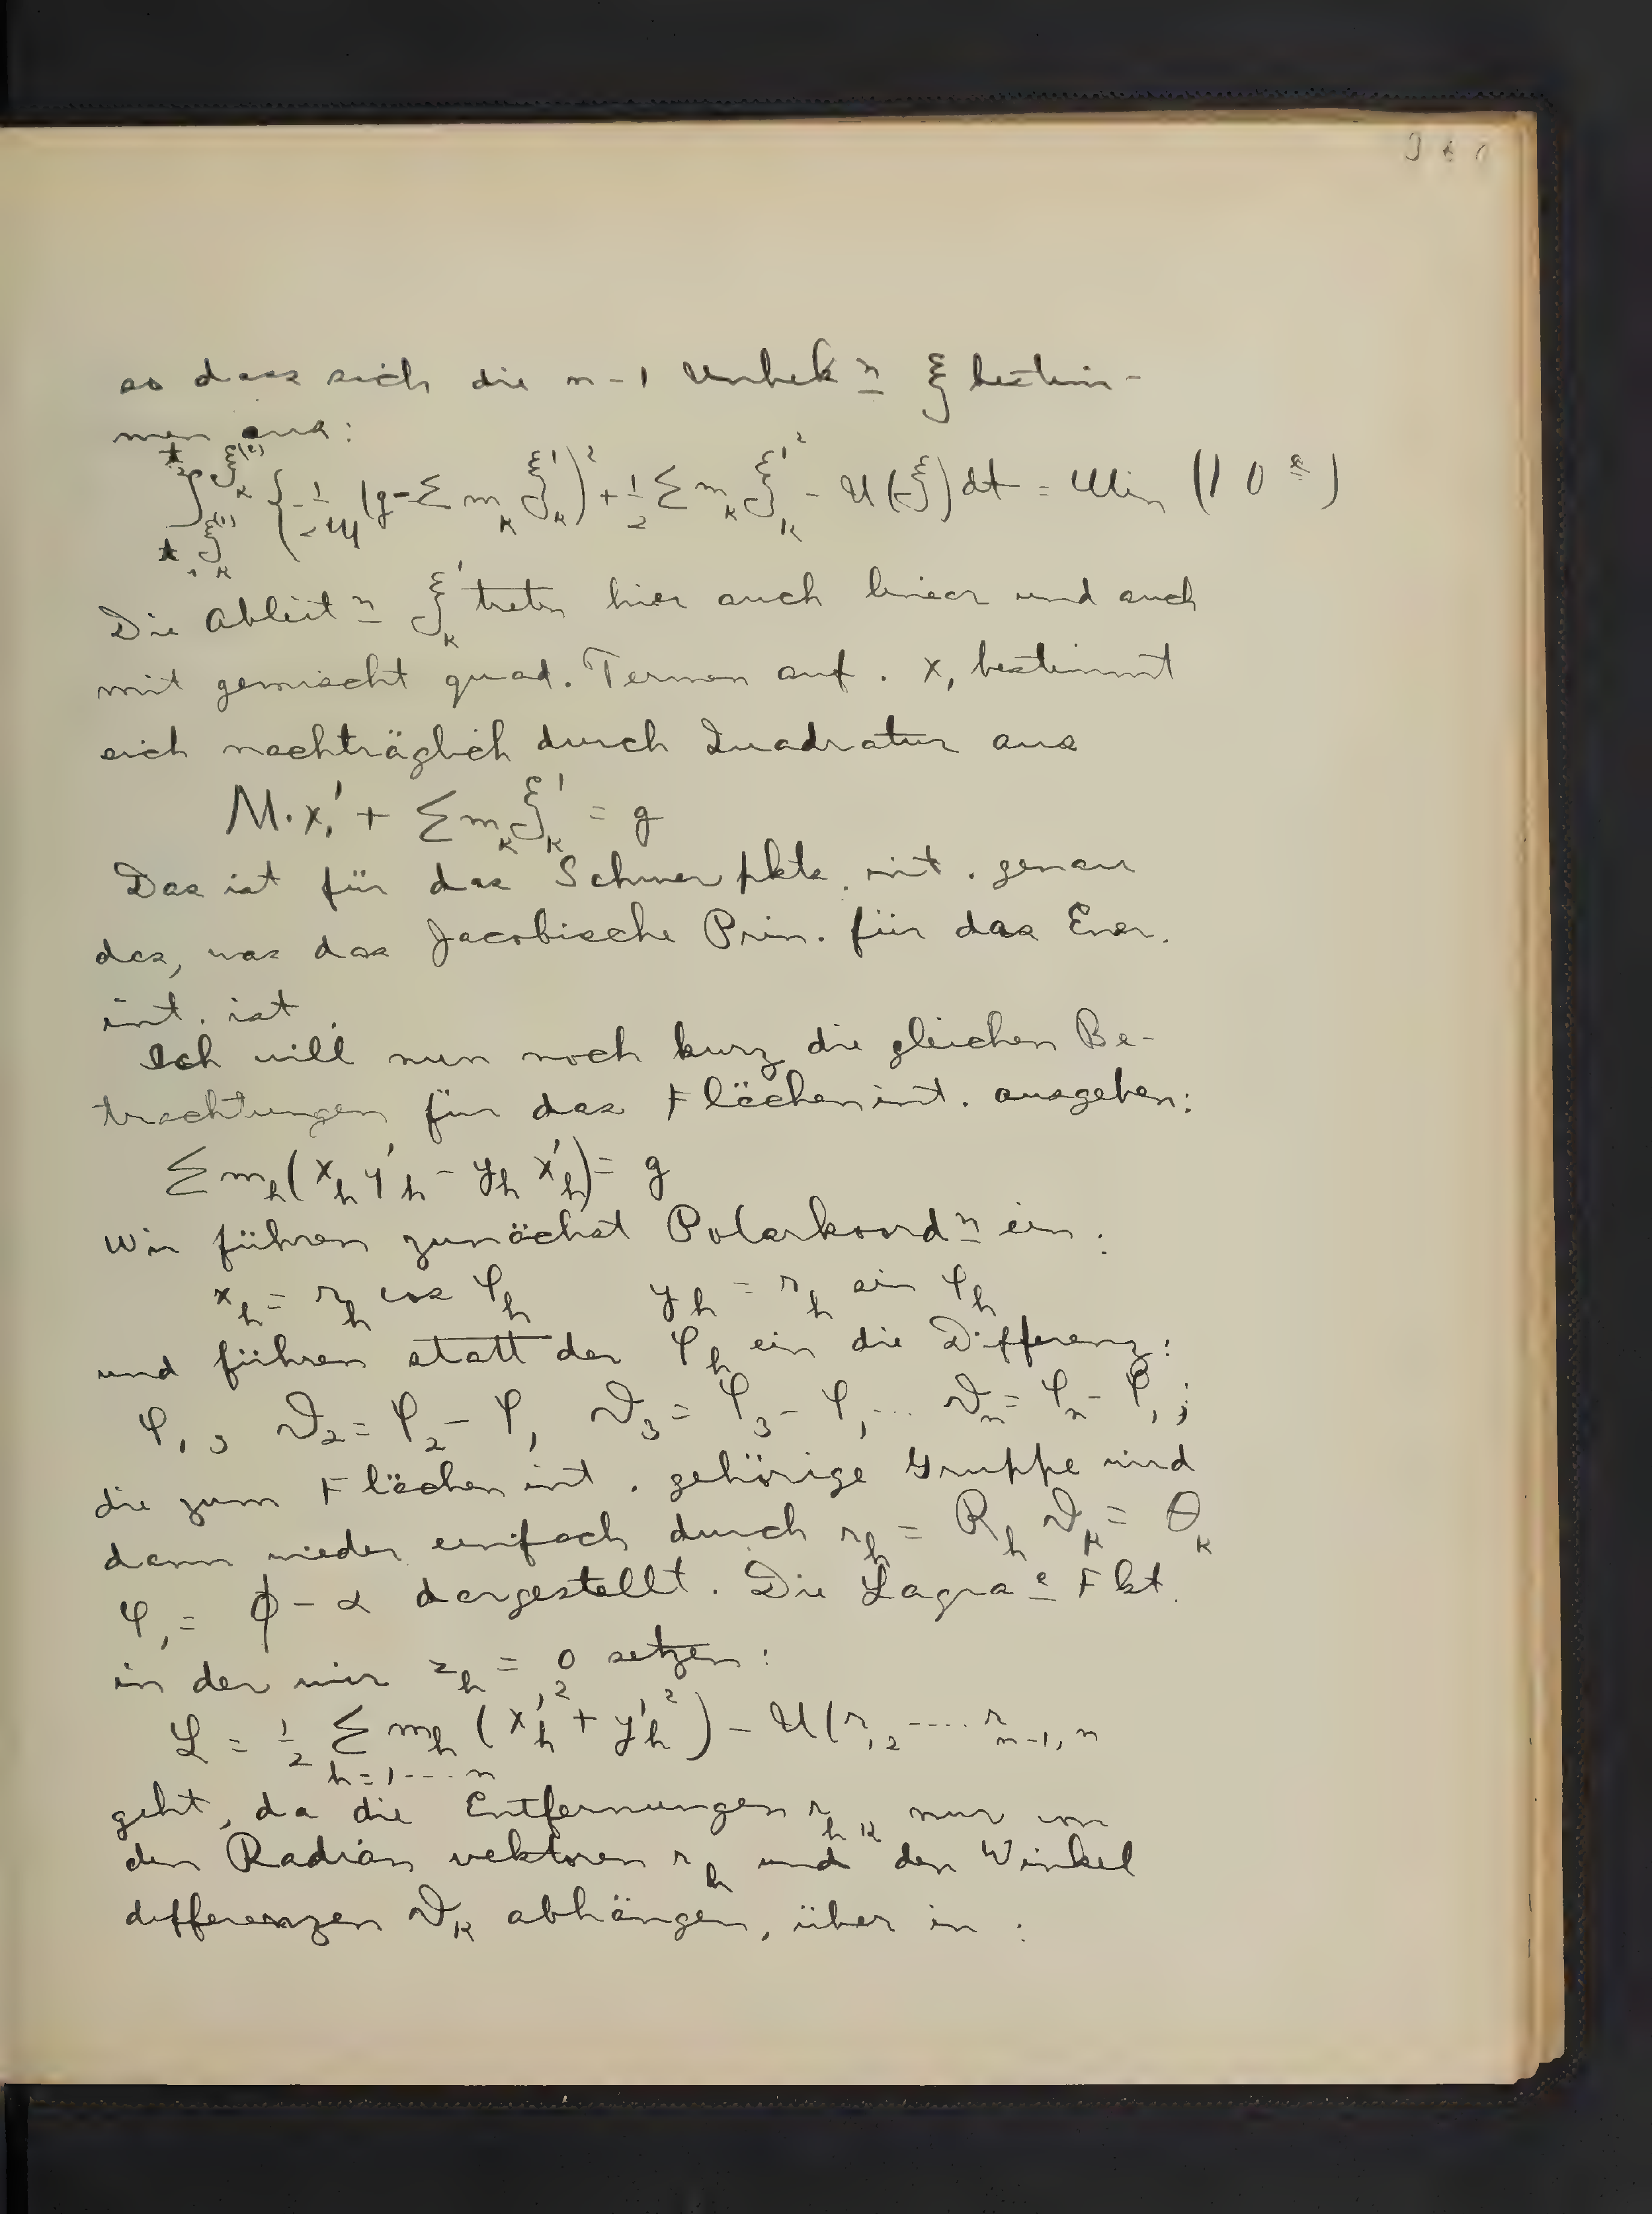 so dass sich die n-1 Unbek<u>n</u> ξ bestim-
men aus:
∫_{t₁, ξ_k^{(1)}}^{t₂, ξ_k^{(2)}} {-1/2M (g - Σ m_k ξ'_k)² + 1/2 Σ m_k ξ'_k² - U(ξ) dt = Min (10<u>a</u>)
Die Ableit<u>n</u> ξ'_k treten hier auch linear und auch
mit gemischt quad. Termen auf. x₁ bestimmt
sich nachträglich durch Quadratur aus
M·x₁' + Σ m_k ξ'_k = g
Das ist für das Schwerpkts. int. genau
das, was das Jacobische Prin. für das Ener.
int. ist.
Ich will nun noch kurz die gleichen Be-
trachtungen für das Flächenint. ausgeben:
Σ m_h (x_h y'_h - y_h x'_h) = g
Wir führen zunächst Polarkoord<u>n</u> ein:
x_h = r_h cos φ_h y_h = r_h sin φ_h
und führen statt der φ_h ein die Differenz:
φ₁, ϑ₂ = φ₂ - φ₁ ϑ₃ = φ₃ - φ₁ ... ϑ_n = φ_n - φ₁;
die zum Flächenint. gehörige Gruppe wird
dann wieder einfach durch r_h = R_h ϑ_k = Θ_k
φ₁ = ϕ - α dargestellt. Die Lagra<u>e</u> Fkt.
in der wir z_h = 0 setzen:
L = 1/2 Σ_{h=1...n} m_h (x'_h² + y'_h²) - U(r₁₂ .... r_{n-1,n}
geht, da die Entfernungen r_{hk} nur von
den Radien vektoren r_h und den Winkel
differenzen ϑ_k abhängen, über in: